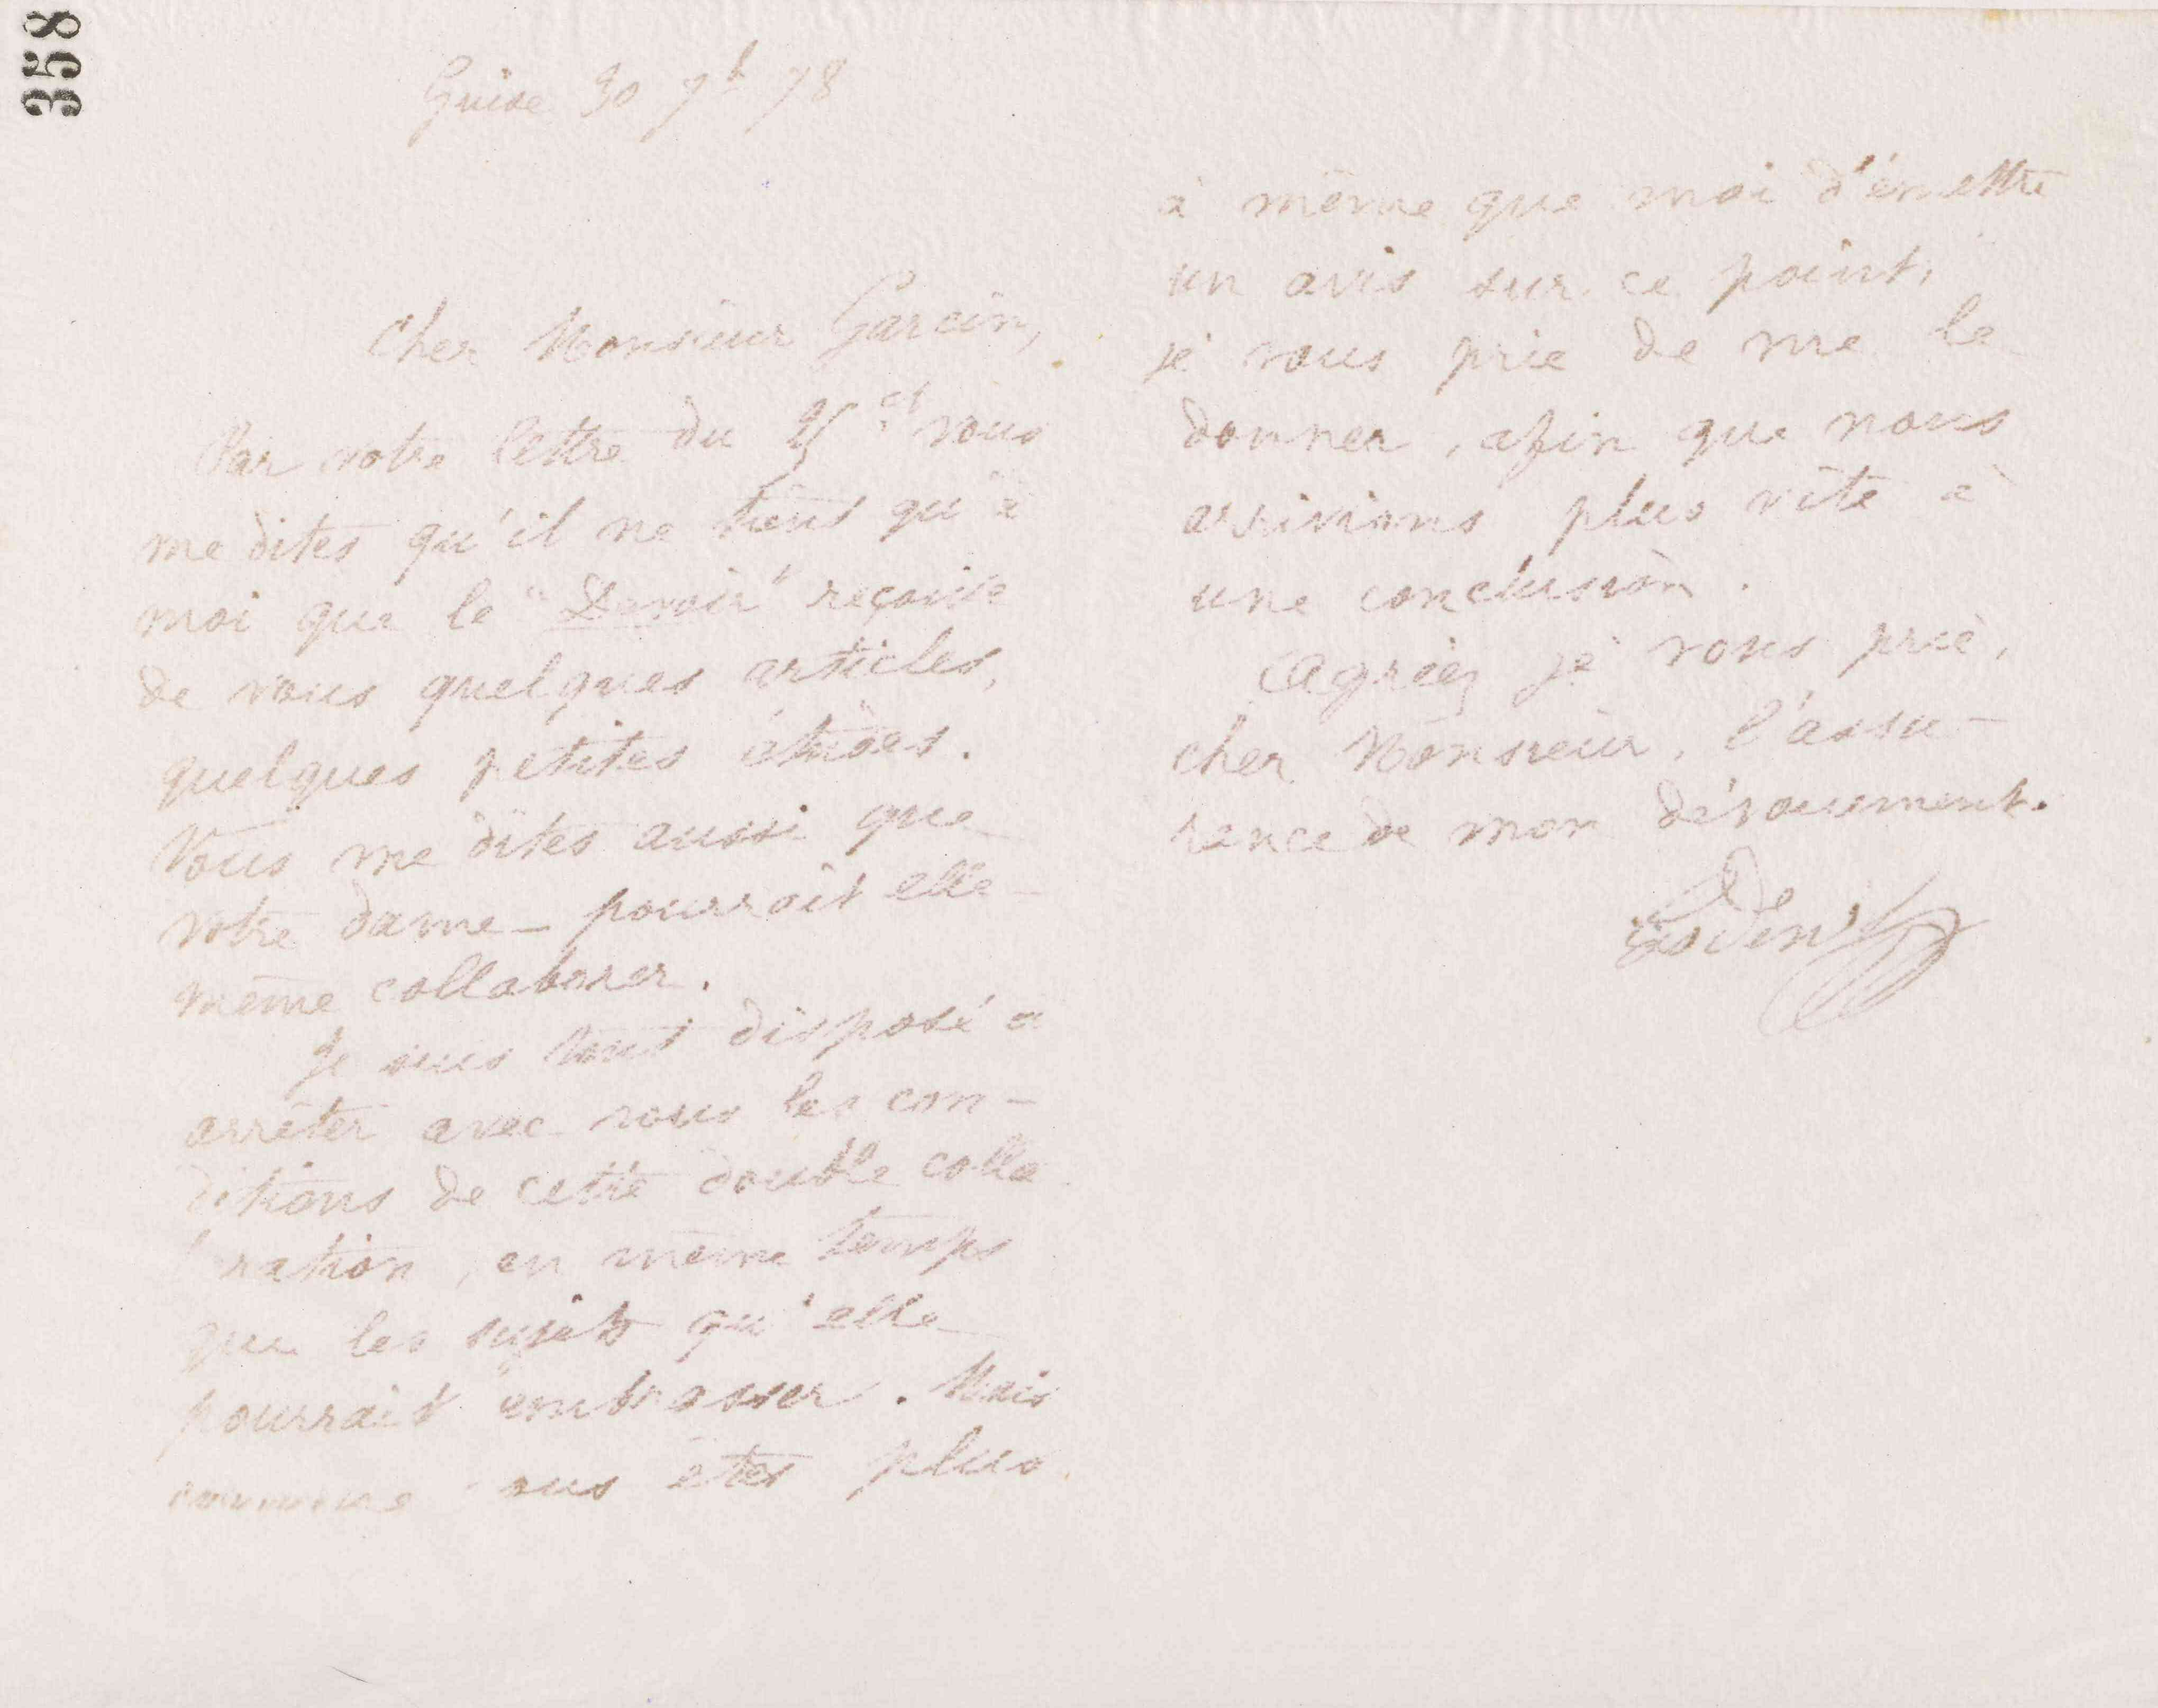 358
Guise 30 7b 78
Cher Monsieur Garcin,
Par votre lettre du 25 ct vous
me dites qu'il ne tient qu'à
moi que le "Devoir" reçoive
de vous quelques articles,
quelques petites études.
Vous me dites aussi que
votre dame pourrait elle-
même collaborer.
Je suis tout disposé à
arrêter avec vous les con-
ditions de cette double colla
ration, en même temps
que les sujets qu'elle
pourrait embrasser. Mais
comme vous êtes plus
à même que moi d'émettre
un avis sur ce point,
je vous prie de me le
donner, afin que nous
arrivions plus vite à
une conclusion.
Agréez je vous prie,
cher Monsieur, l'assu-
rance de mon dévouement.
Godin